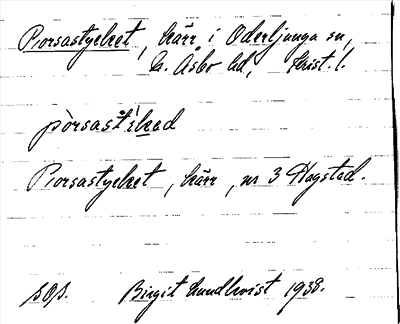 Porsastycket, kärr i Oderljunga sn,
N. Åsbo hd, Krist. l.
pòrsastìkəd
Porsastycket, kärr, nr 3 Hagstad.
sOp. Birgit Lundkvist 1938.